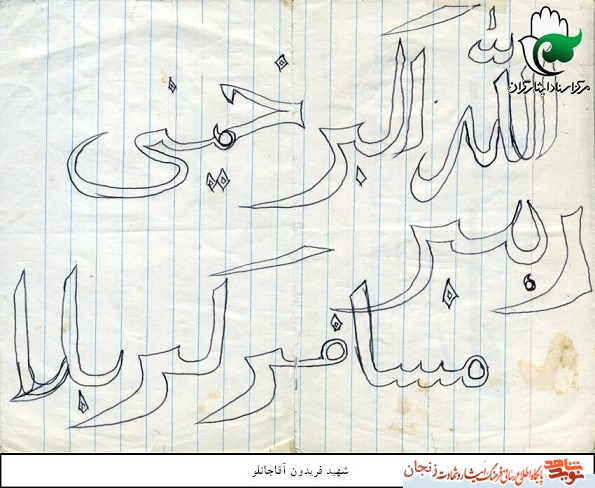 مرکز اسناد ایثارگران
الله اکبر خمینی
رهبر
مسافر کربلا
شهید فریدون آقاجانلو
نوید شاهد پایگاه اطلاع رسانی فرهنگ ایثار و شهادت زنجان